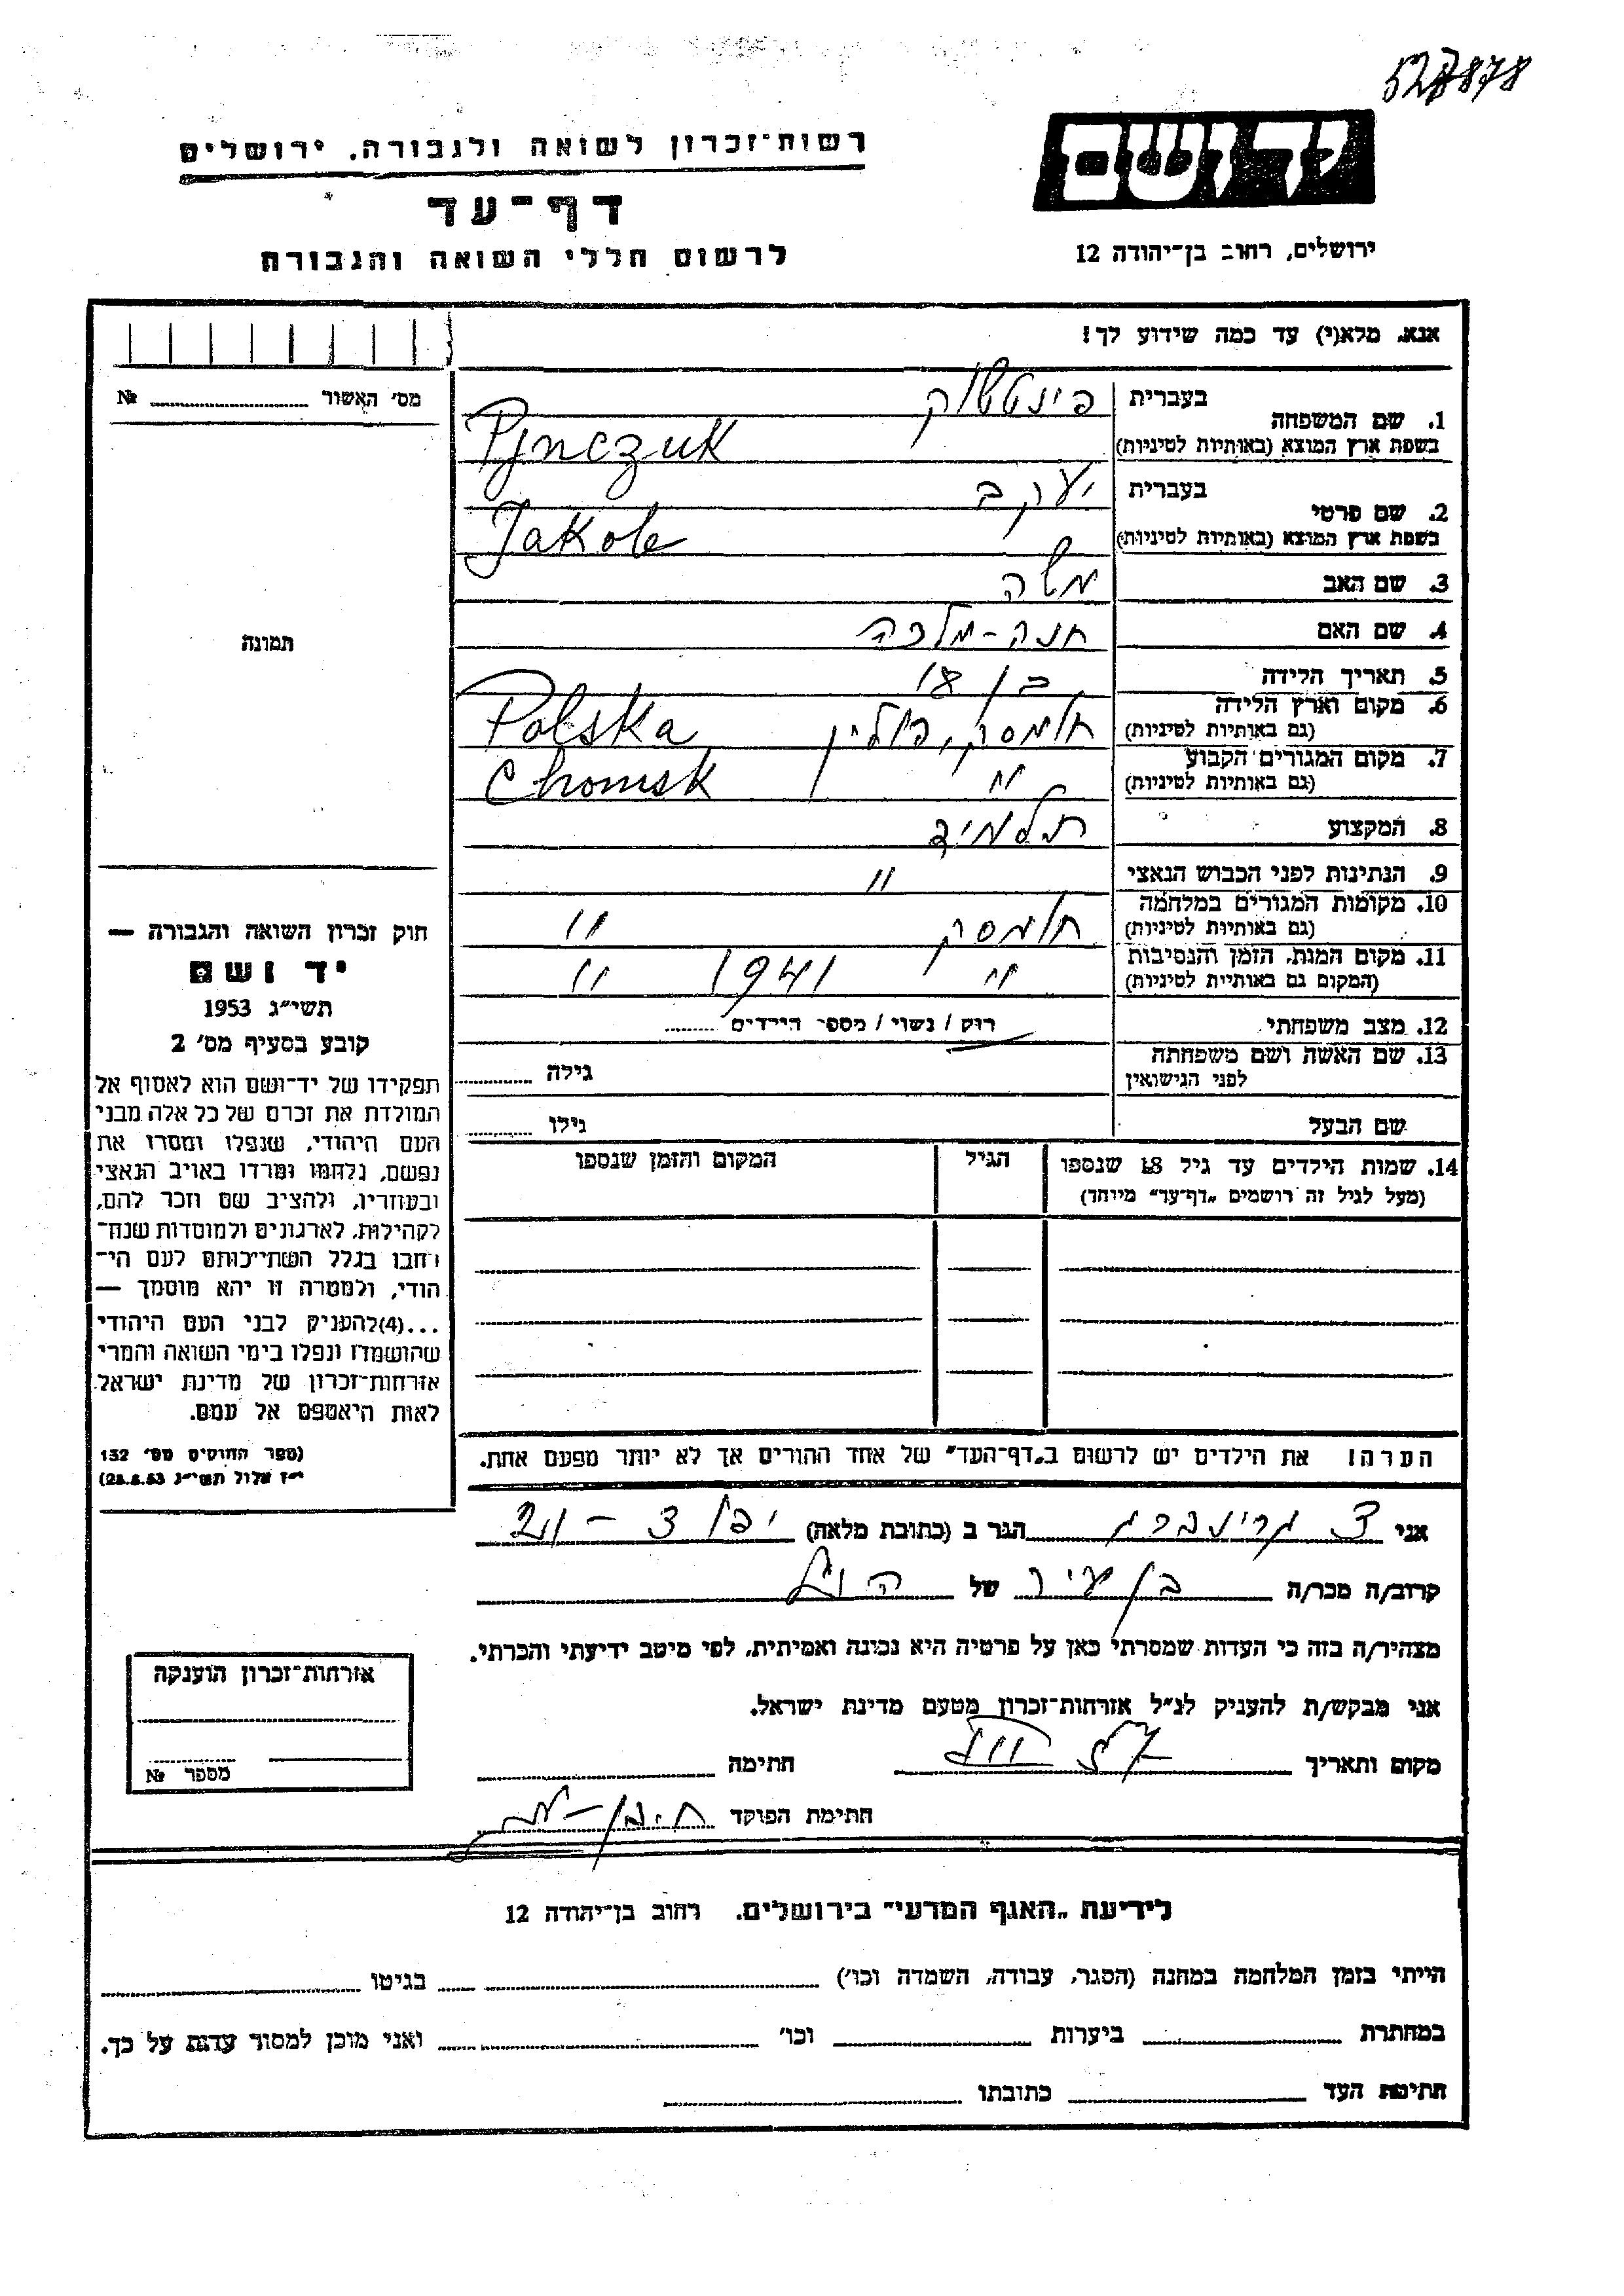 527878
יד ושם
ירושלים, רחוב בן־יהודה 12
רשות־זכרון לשואה ולגבורה, ירושלים
דף־עד
לרשום חללי השואה והגבורה
אנא, מלא(י) עד כמה שידוע לך!
1. שם המשפחה בעברית פינטשוק
בשפת ארץ המוצא (באותיות לטיניות) Pjnczuk
2. שם פרטי בעברית יעקב
בשפת ארץ המוצא (באותיות לטיניות) Jakob
3. שם האב משה
4. שם האם חנה-מלכה
5. תאריך הלידה בן 18
6. מקום וארץ הלידה (גם באותיות לטיניות) חומסק, פולין Polska
7. מקום המגורים הקבוע (גם באותיות לטיניות) " Chomsk
8. המקצוע תלמיד
9. הנתינות לפני הכבוש הנאצי "
10. מקומות המגורים במלחמה (גם באותיות לטיניות) חומסק "
11. מקום המות, הזמן והנסיבות (המקום גם באותיית לטיניות) " 1941 "
12. מצב משפחתי רווק / נשוי / מספר הילדים
13. שם האשה ושם משפחתה לפני הנישואין גילה
שם הבעל גילו
14. שמות הילדים עד גיל 18 שנספו הגיל המקום והזמן שנספו
(מעל לגיל זה רושמים „דף־עד" מיוחד)
הערה! את הילדים יש לרשום ב„דף־העד" של אחד ההורים אך לא יותר מפעם אחת.
מס' האשור №
תמונה
חוק זכרון השואה והגבורה —
יד ושם
תשי"ג 1953
קובע בסעיף מס' 2
תפקידו של יד־ושם הוא לאסוף אל
המולדת את זכרם של כל אלה מבני
העם היהודי, שנפלו ומסרו את
נפשם, נלחמו ומרדו באויב הנאצי
ובעוזריו, ולהציב שם וזכר להם,
לקהילות, לארגונים ולמוסדות שנח־
רחבו בגלל השתייכותם לעם הי־
הודי, ולמטרה זו יהא מוסמך —
...(4)להעניק לבני העם היהודי
שהושמדו ונפלו בימי השואה והמרי
אזרחות־זכרון של מדינת ישראל
לאות היאספם אל עמם.
(ספר החוקים מס' 132
י"ז אלול תשי"ג 28.8.53)
אני הגר ב (כתובת מלאה) יפו
קרוב/ה מכר/ה בן עיר של הנ"ל
מצהיר/ה בזה כי העדות שמסרתי כאן על פרטיה היא נכונה ואמיתית, לפי מיטב ידיעתי והכרתי.
אני מבקש/ת להעניק לנ"ל אזרחות־זכרון מטעם מדינת ישראל.
מקום ותאריך חתימה
חתימת הפוקד
אזרחות־זכרון הוענקה
מספר №
לידיעת „האגף המדעי" בירושלים. רחוב בן־יהודה 12
הייתי בזמן המלחמה במחנה (הסגר, עבודה, השמדה וכו') בגיטו
במחתרת ביערות וכו' ואני מוכן למסור עדות על כך.
חתימת העד כתובתו